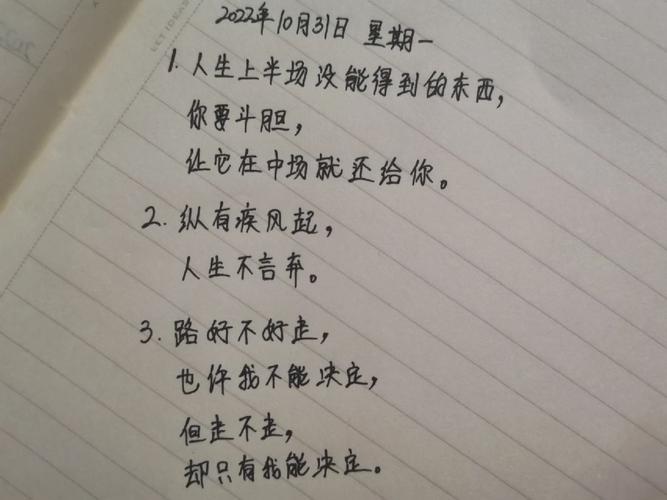 2022年10月31日 星期一
1. 人生上半场没能得到的东西,
你要斗胆,
让它在中场就还给你。
2. 纵有疾风起,
人生不言弃。
3. 路好不好走,
也许我不能决定,
但走不走,
却只有我能决定。